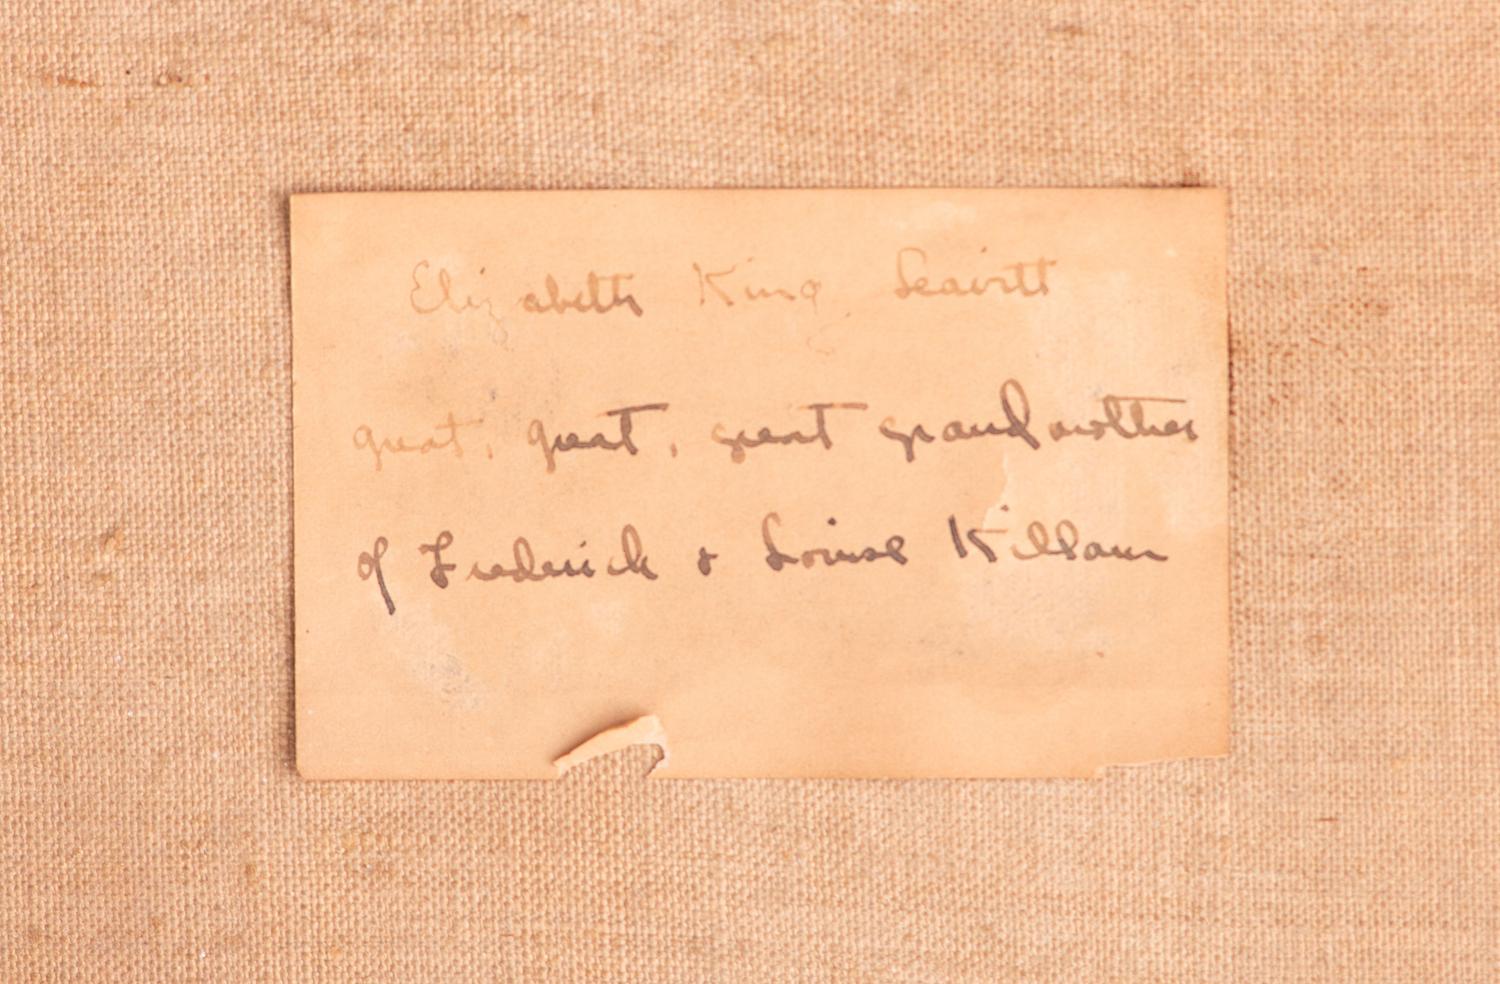 Elizabeth King Leavitt
great, great, great grandmother
of Frederick & Louise Killam